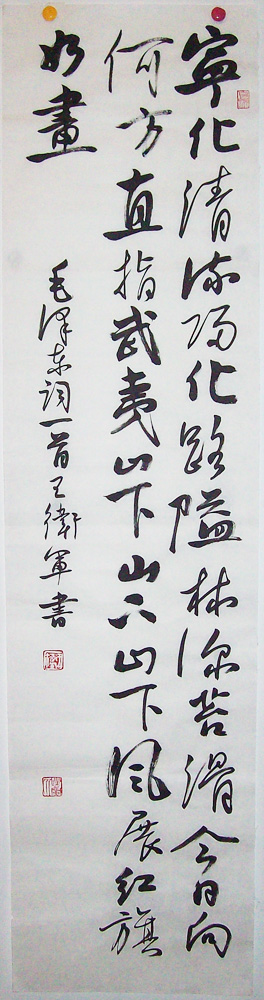 寧化清流归化路隘林深苔滑今日向
何方直指武夷山下山下山下风展红旗
如畫
毛泽东词一首王衛軍書